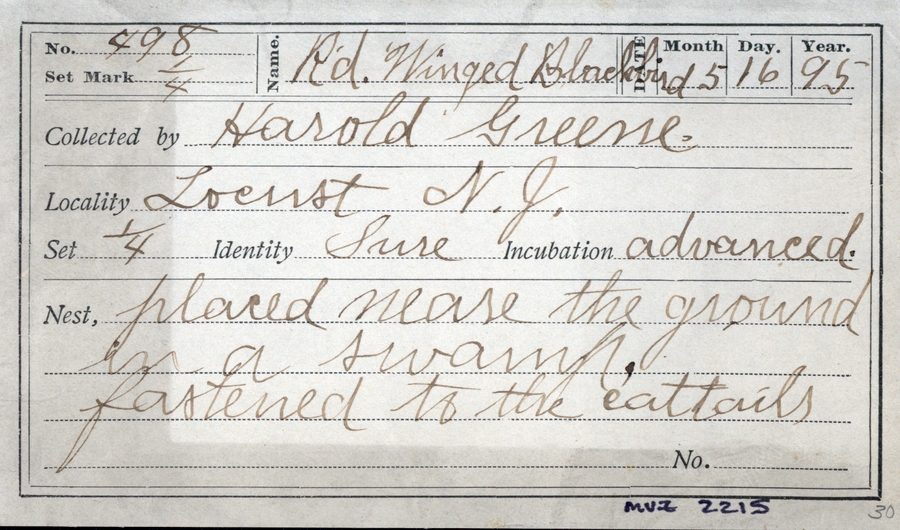 No. 498 Name. R'd. Winged Blackbird DATE Month 5 Day. 16 Year. 95
Set Mark 1/4
Collected by Harold Greene.
Locality Locust N.J.
Set 1/4 Identity Sure Incubation advanced.
Nest, placed nease the ground
in a swamp,
fastened to the cattails
No.
MVZ 2215
30